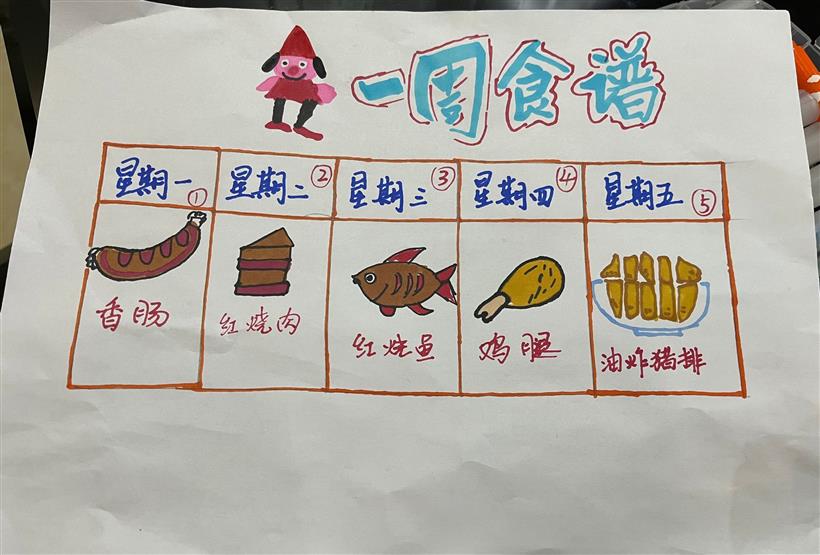 一周食谱
星期一 ① 星期二 ② 星期三 ③ 星期四 ④ 星期五 ⑤
香肠 红烧肉 红烧鱼 鸡腿 油炸猪排